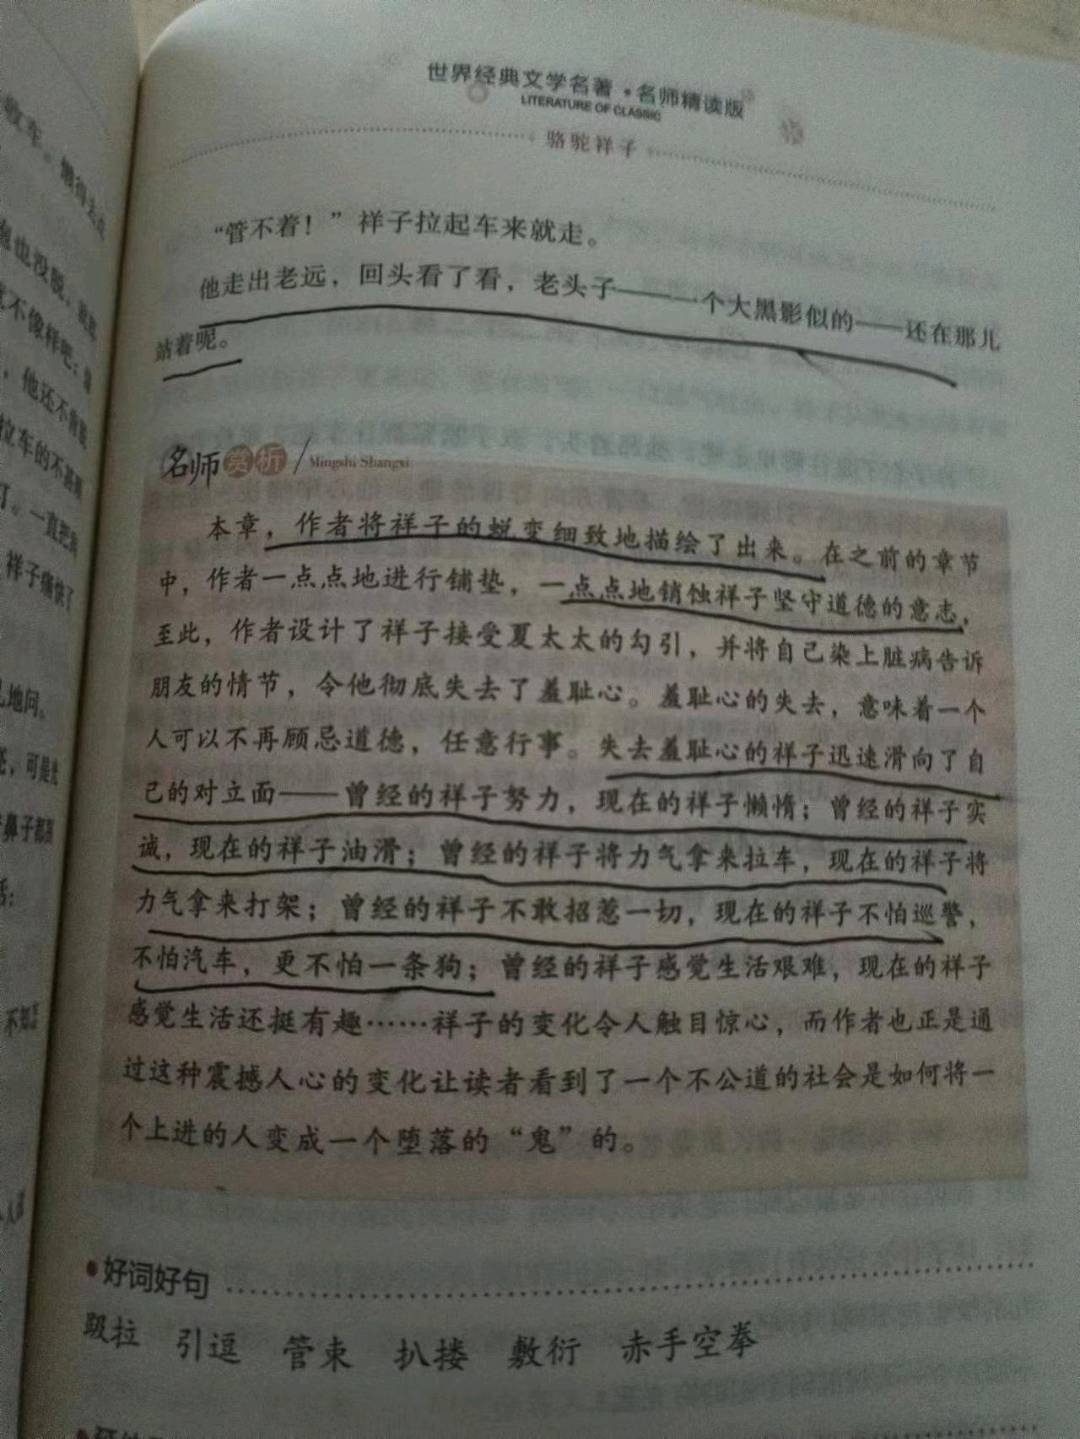 世界经典文学名著·名师精读版
LITERATURE OF CLASSIC
骆驼祥子
“管不着！”祥子拉起车来就走。
他走出老远，回头看了看，老头子——一个大黑影似的——还在那儿
站着呢。
名师赏析 Mingshi Shangxi
本章，作者将祥子的蜕变细致地描绘了出来。在之前的章节
中，作者一点点地进行铺垫，一点点地销蚀祥子坚守道德的意志，
至此，作者设计了祥子接受夏太太的勾引，并将自己染上脏病告诉
朋友的情节，令他彻底失去了羞耻心。羞耻心的失去，意味着一个
人可以不再顾忌道德，任意行事。失去羞耻心的祥子迅速滑向了自
己的对立面——曾经的祥子努力，现在的祥子懒惰；曾经的祥子实
诚，现在的祥子油滑；曾经的祥子将力气拿来拉车，现在的祥子将
力气拿来打架；曾经的祥子不敢招惹一切，现在的祥子不怕巡警，
不怕汽车，更不怕一条狗；曾经的祥子感觉生活艰难，现在的祥子
感觉生活还挺有趣……祥子的变化令人触目惊心，而作者也正是通
过这种震撼人心的变化让读者看到了一个不公道的社会是如何将一
个上进的人变成一个堕落的“鬼”的。
好词好句
趿拉 引逗 管束 扒搂 敷衍 赤手空拳
收车。懒得去
也没脱，就
不像样吧；
，他还不肯
拉车的不甚
。一直把
祥子痛快了
地问。
，可是
鼻子都
不知怎